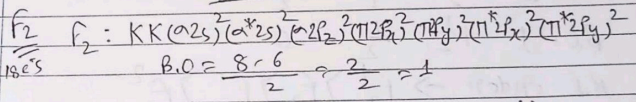 F₂ F₂ : KK(σ2s)²(σ*2s)²(σ2Pz)²(π2Px)²(π2Py)²(π*2Px)²(π*2Py)²
18e's B.O = 8-6/2 = 2/2 = 1